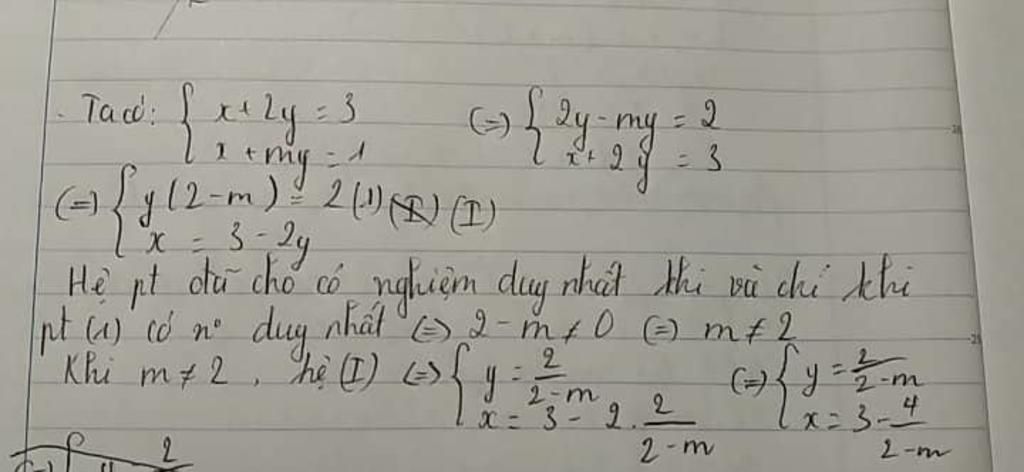 . Ta có: { x + 2y = 3 (=) { 2y - my = 2
x + my = 1 x + 2y = 3
(=) { y(2 - m) = 2 (1) (I)
x = 3 - 2y
Hệ pt đã cho có nghiệm duy nhất khi và chỉ khi
pt (1) có n° duy nhất (=) 2 - m ≠ 0 (=) m ≠ 2
Khi m ≠ 2, hệ (I) (=) { y = 2/(2 - m) (=) { y = 2/(2 - m)
x = 3 - 2 . 2/(2 - m) x = 3 - 4/(2 - m)